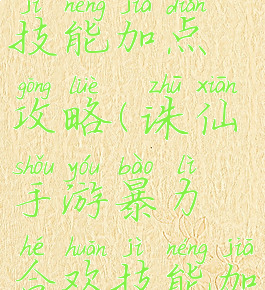 jì néng jiā diǎn
技能加点
gōng lüè zhū xiān
攻略(诛仙
shǒu yóu bào lì
手游暴力
hé huān jì néng jiā
合欢技能加